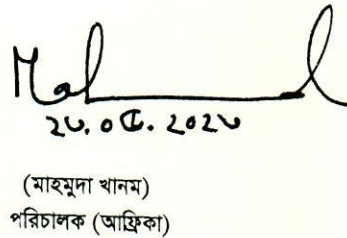 ২৩.০৫.২০২৩
(মাহমুদা খানম)
পরিচালক (আফ্রিকা)